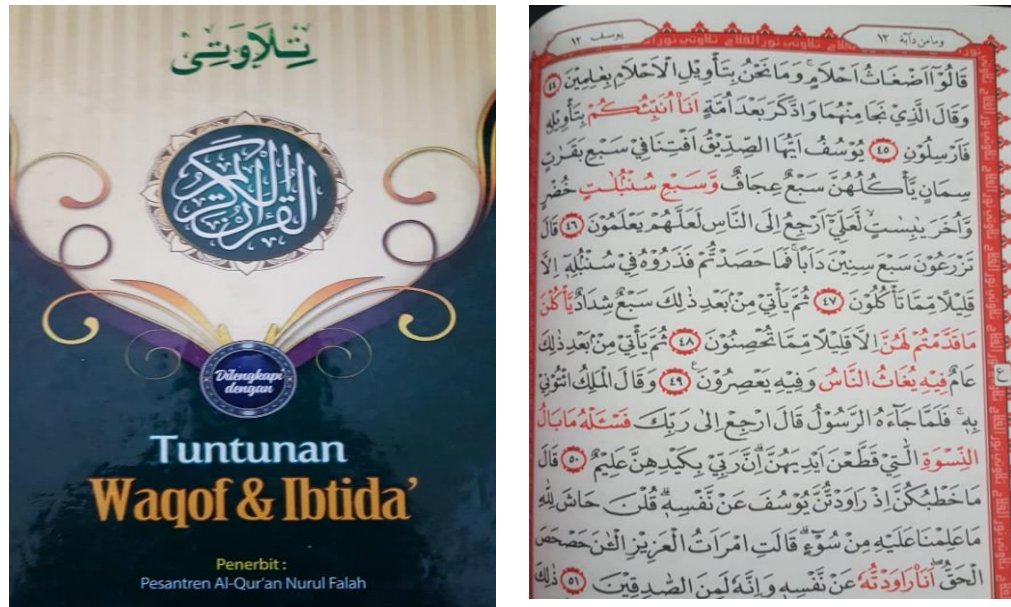 تِلَاوَتِى
القرآن الكريم
Dilengkapi
dengan
Tuntunan
Waqof & Ibtida'
Penerbit :
Pesantren Al-Qur'an Nurul Falah
يوسف ١٢
وما من دابة ١٢
قَالُوْٓا اَضْغَاثُ اَحْلَامٍ ۚوَمَا نَحْنُ بِتَأْوِيْلِ الْاَحْلَامِ بِعٰلِمِيْنَ ٤٤
وَقَالَ الَّذِيْ نَجَا مِنْهُمَا وَادَّكَرَ بَعْدَ اُمَّةٍ اَنَا۠ اُنَبِّئُكُمْ بِتَأْوِيْلِهٖ
فَاَرْسِلُوْنِ ٤٥ يُوْسُفُ اَيُّهَا الصِّدِّيْقُ اَفْتِنَا فِيْ سَبْعِ بَقَرٰتٍ
سِمَانٍ يَّأْكُلُهُنَّ سَبْعٌ عِجَافٌ وَّسَبْعِ سُنْۢبُلٰتٍ خُضْرٍ
وَّاُخَرَ يٰبِسٰتٍۙ لَّعَلِّيْٓ اَرْجِعُ اِلَى النَّاسِ لَعَلَّهُمْ يَعْلَمُوْنَ ٤٦ قَالَ
تَزْرَعُوْنَ سَبْعَ سِنِيْنَ دَاَبًاۚ فَمَا حَصَدْتُّمْ فَذَرُوْهُ فِيْ سُنْۢبُلِهٖٓ اِلَّا
قَلِيْلًا مِّمَّا تَأْكُلُوْنَ ٤٧ ثُمَّ يَأْتِيْ مِنْۢ بَعْدِ ذٰلِكَ سَبْعٌ شِدَادٌ يَّأْكُلْنَ
مَا قَدَّمْتُمْ لَهُنَّ اِلَّا قَلِيْلًا مِّمَّا تُحْصِنُوْنَ ٤٨ ثُمَّ يَأْتِيْ مِنْۢ بَعْدِ ذٰلِكَ
عَامٌ فِيْهِ يُغَاثُ النَّاسُ وَفِيْهِ يَعْصِرُوْنَ ٤٩ وَقَالَ الْمَلِكُ ائْتُوْنِيْ
بِهٖۚ فَلَمَّا جَاۤءَهُ الرَّسُوْلُ قَالَ ارْجِعْ اِلٰى رَبِّكَ فَسْـَٔلْهُ مَا بَالُ
النِّسْوَةِ الّٰتِيْ قَطَّعْنَ اَيْدِيَهُنَّۗ اِنَّ رَبِّيْ بِكَيْدِهِنَّ عَلِيْمٌ ٥٠ قَالَ
مَا خَطْبُكُنَّ اِذْ رَاوَدْتُّنَّ يُوْسُفَ عَنْ نَّفْسِهٖۗ قُلْنَ حَاشَ لِلّٰهِ
مَا عَلِمْنَا عَلَيْهِ مِنْ سُوْۤءٍۗ قَالَتِ امْرَاَتُ الْعَزِيْزِ الْـٰٔنَ حَصْحَصَ
الْحَقُّۖ اَنَا۠ رَاوَدْتُّهٗ عَنْ نَّفْسِهٖ وَاِنَّهٗ لَمِنَ الصّٰدِقِيْنَ ٥١ ذٰلِكَ